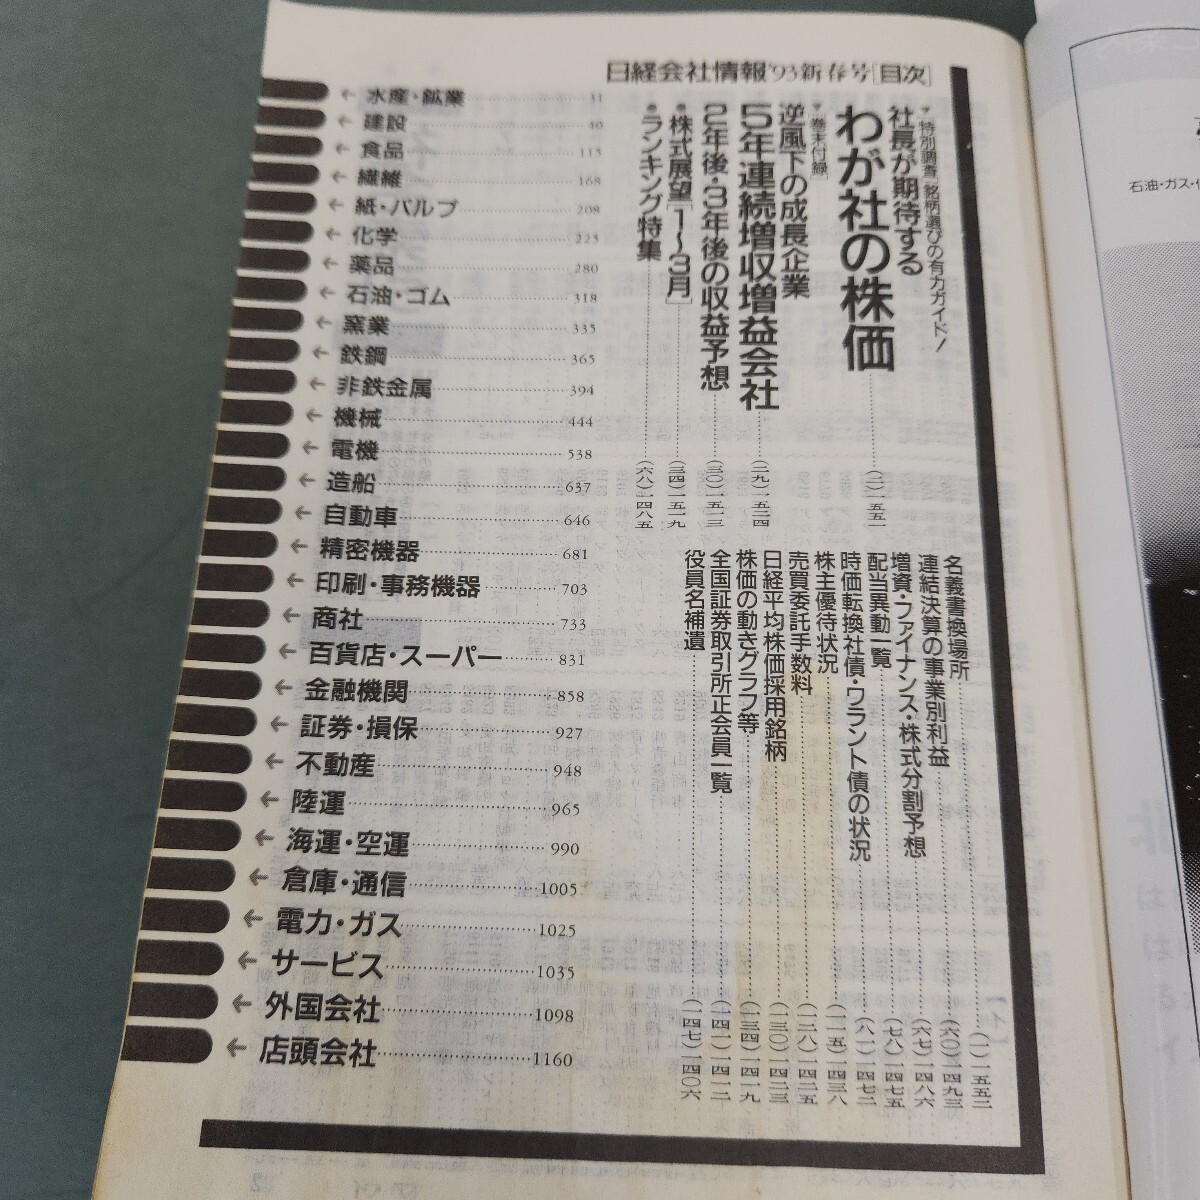 日経会社情報 '93新春号［目次］
▼特別調査 銘柄選びの有力ガイド！
社長が期待する
わが社の株価 (二)一五五一
▼巻末付録
逆風下の成長企業
5年連続増収増益会社 (二九)一五二四
2年後・3年後の収益予想 (三〇)一五一三
●株式展望［1〜3月］ (三四)一五一九
●ランキング特集 (六八)一四八五
名義書換場所 (一)一五五二
連結決算の事業別利益 (六〇)一四九三
増資・ファイナンス・株式分割予想 (六七)一四八六
配当異動一覧 (七八)一四七五
時価転換社債・ワラント債の状況 (八一)一四七二
株主優待状況 (一一五)一四三八
売買委託手数料 (一二八)一四二五
日経平均株価採用銘柄 (一三〇)一四二三
株価の動きグラフ等 (一三四)一四一九
全国証券取引所正会員一覧 (一四一)一四一二
役員名補遺 (一四七)一四〇六
← 水産・鉱業 31
← 建設 40
← 食品 115
← 繊維 168
← 紙・パルプ 208
← 化学 225
← 薬品 280
← 石油・ゴム 318
← 窯業 335
← 鉄鋼 365
← 非鉄金属 394
← 機械 444
← 電機 538
← 造船 637
← 自動車 646
← 精密機器 681
← 印刷・事務機器 703
← 商社 733
← 百貨店・スーパー 831
← 金融機関 858
← 証券・損保 927
← 不動産 948
← 陸運 965
← 海運・空運 990
← 倉庫・通信 1005
← 電力・ガス 1025
← サービス 1035
← 外国会社 1098
← 店頭会社 1160
石油・ガス・